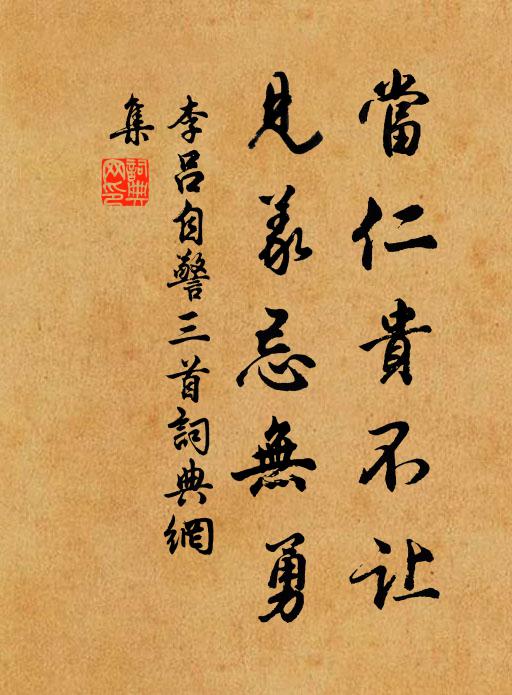 當仁貴不让
見義忌無勇
李呂自警三首詞典網
集
詞典
网印